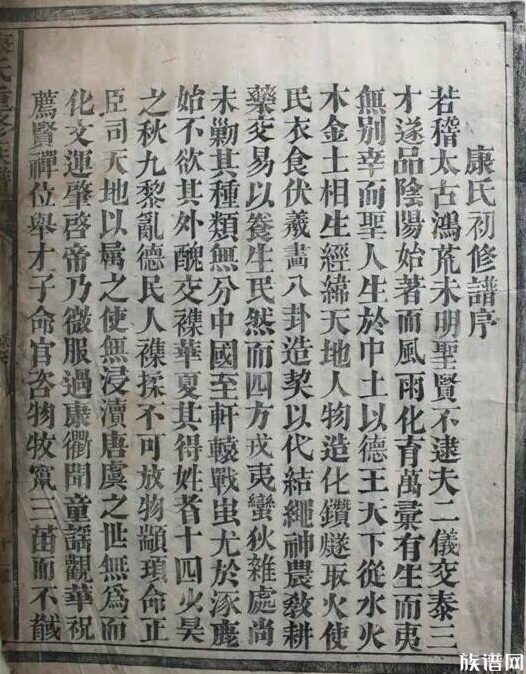 康氏初修譜序
若稽太古鴻荒未明聖賢不逮夫二儀交泰三
才遂品陰陽始著而風雨化育萬彙有生而夷
無別幸而聖人生於中土以德王天下從水火
木金土相生經緯天地人物造化鑽燧取火使
民衣食伏羲畫八卦造契以代結繩神農教耕
藥交易以養生民然而四方戎夷蠻狄雜處尚
未勦其種類無分中國至軒轅戰蚩尤於涿鹿
始不欲其外醜交襍華夏其得姓者十四少昊
之秋九黎亂德民人襍揉不可放物顓頊命正
臣司天地以屬之使無浸瀆唐虞之世無為而
化文運肇啓帝乃微服過康衢聞童謡觀華祝
薦賢禪位舉才子命官咨物牧竄三苗而不
康氏重修族譜
族谱网